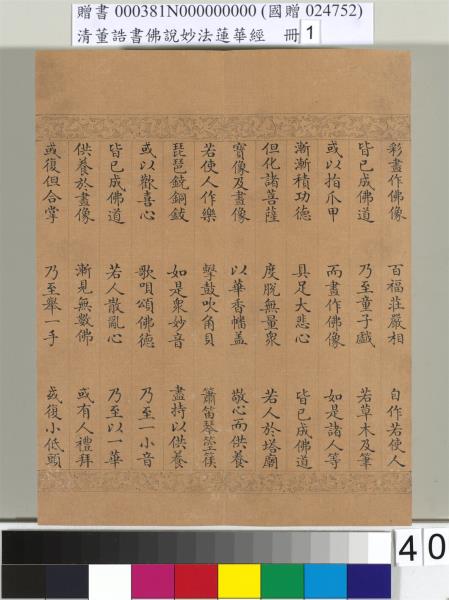 贈書 000381N000000000 (國贈 024752)
清董誥書佛說妙法蓮華經 冊 1
彩畫作佛像 百福莊嚴相 自作若使人
皆已成佛道 乃至童子戲 若草木及筆
或以指爪甲 而畫作佛像 如是諸人等
漸漸積功德 具足大悲心 皆已成佛道
但化諸菩薩 度脫無量衆 若人於塔廟
寶像及畫像 以華香幡蓋 敬心而供養
若使人作樂 擊鼓吹角貝 簫笛琴箜篌
琵琶鐃銅鈸 如是衆妙音 盡持以供養
或以歡喜心 歌唄頌佛德 乃至一小音
皆已成佛道 若人散亂心 乃至以一華
供養於畫像 漸見無數佛 或有人禮拜
或復但合掌 乃至舉一手 或復小低頭
40